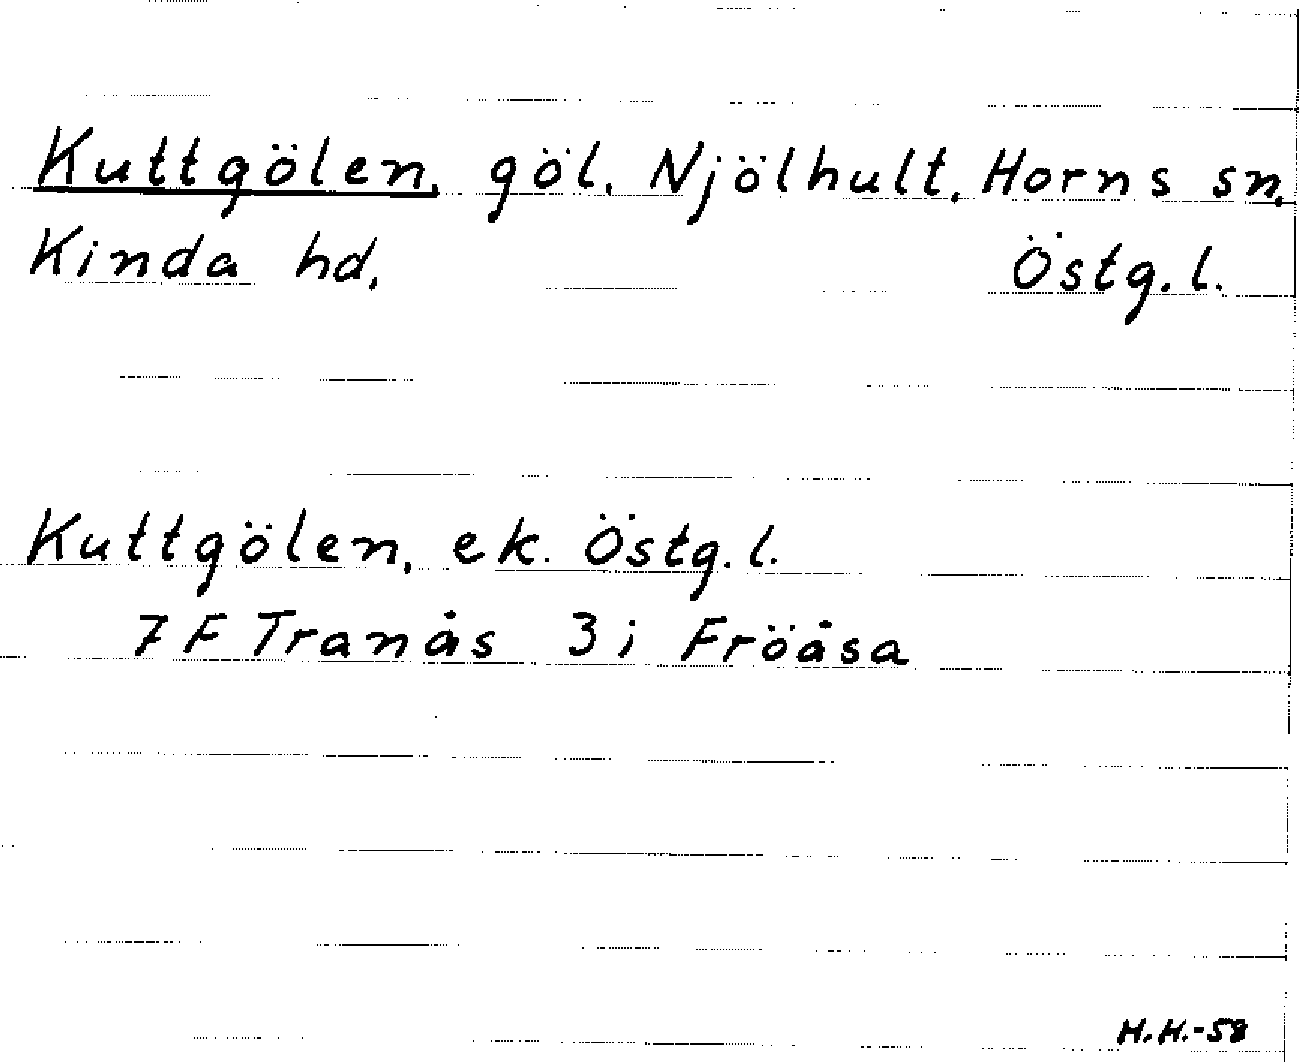 Kuttgölen, göl, Njölhult, Horns sn,
Kinda hd, Östg. l.
Kuttgölen, ek. Östg. l.
7 F Tranås 3 i Fröåsa
H.H.-58